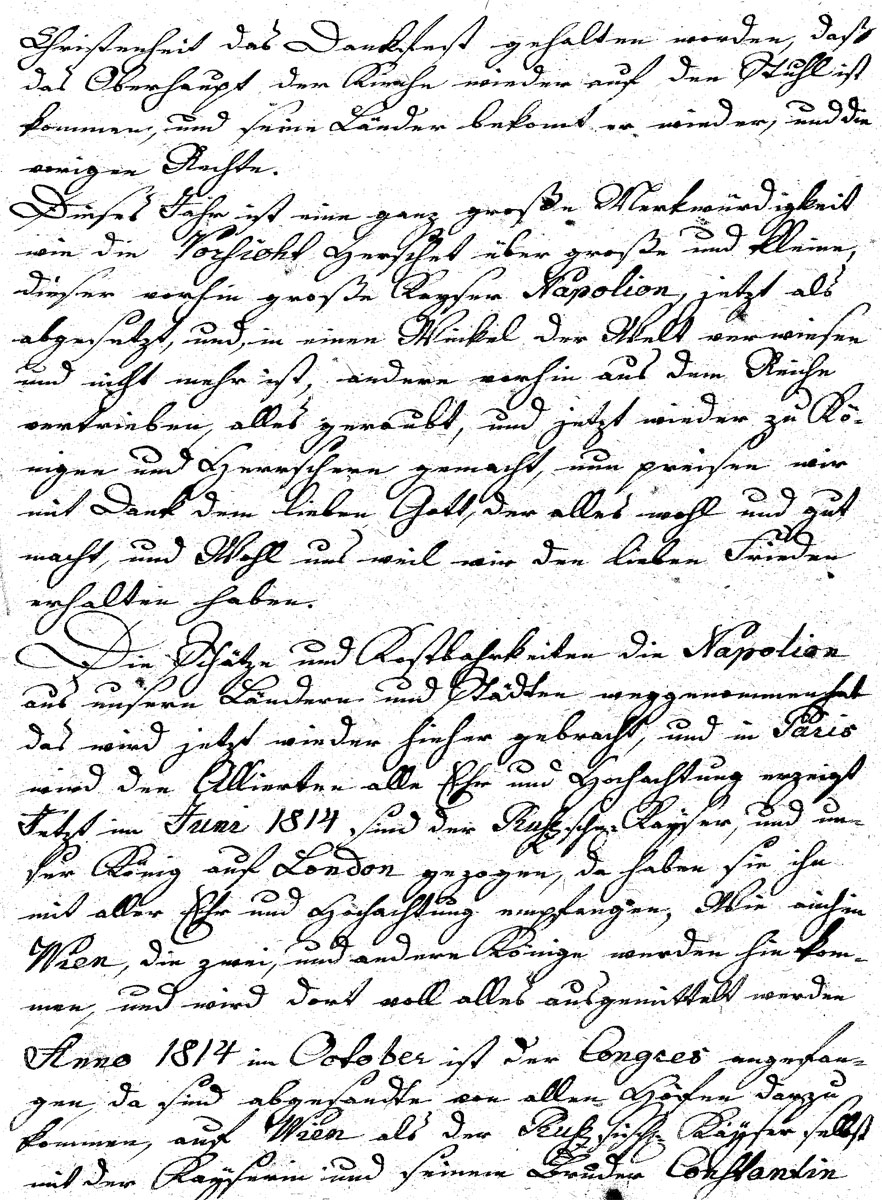 Christenheit das Dankfest gehalten worden, daß
das Oberhaupt der Kirche wieder auf den Stuhl ist
kommen, und seine Länder bekomt er wieder, und die
vorigen Rechte.
Dieses Jahr ist eine ganz große Merkwürdigkeit
wie die Vorsicht Herschet über große und kleine,
dieser vorhin große Keyser Napolion, jetzt als
abgesetzt, und, in einen Winkel der Welt verwiesen
und nicht mehr ist, andere vorhin aus dem Reiche
vertrieben, alles geraubt, und jetzt wieder zu Kö-
nigen und Herrschern gemacht, nun preisen wir
mit Dank dem lieben Gott, der alles wohl und gut
macht, und Wohl uns weil wir den lieben Frieden
erhalten haben.
Die Schätze und Kostbahrkeiten die Napolion
aus unsern Ländern und Städten weggenommen hat
das wird jetzt wieder hieher gebracht, und in Paris
wird den Allierten alle Ehr und Hochachtung erzeigt
Jetzt im Juni 1814 sind der Ruß.sche Kayser, und un-
ser König auf London gezogen, da haben sie ihn
mit aller Ehr und Hochachtung empfangen, Wie auch in
Wien, die zwei, und andere Könige werden hin kom-
men, und wird dort voll alles ausgemittelt werden
Anno 1814 im October ist der Congres angefan-
gen, da sind abgesandte von allen Höfen darzu
kommen, auf Wien als der Rußsische Kayser selbst
mit der Kayserin und seinem Bruder Constantin